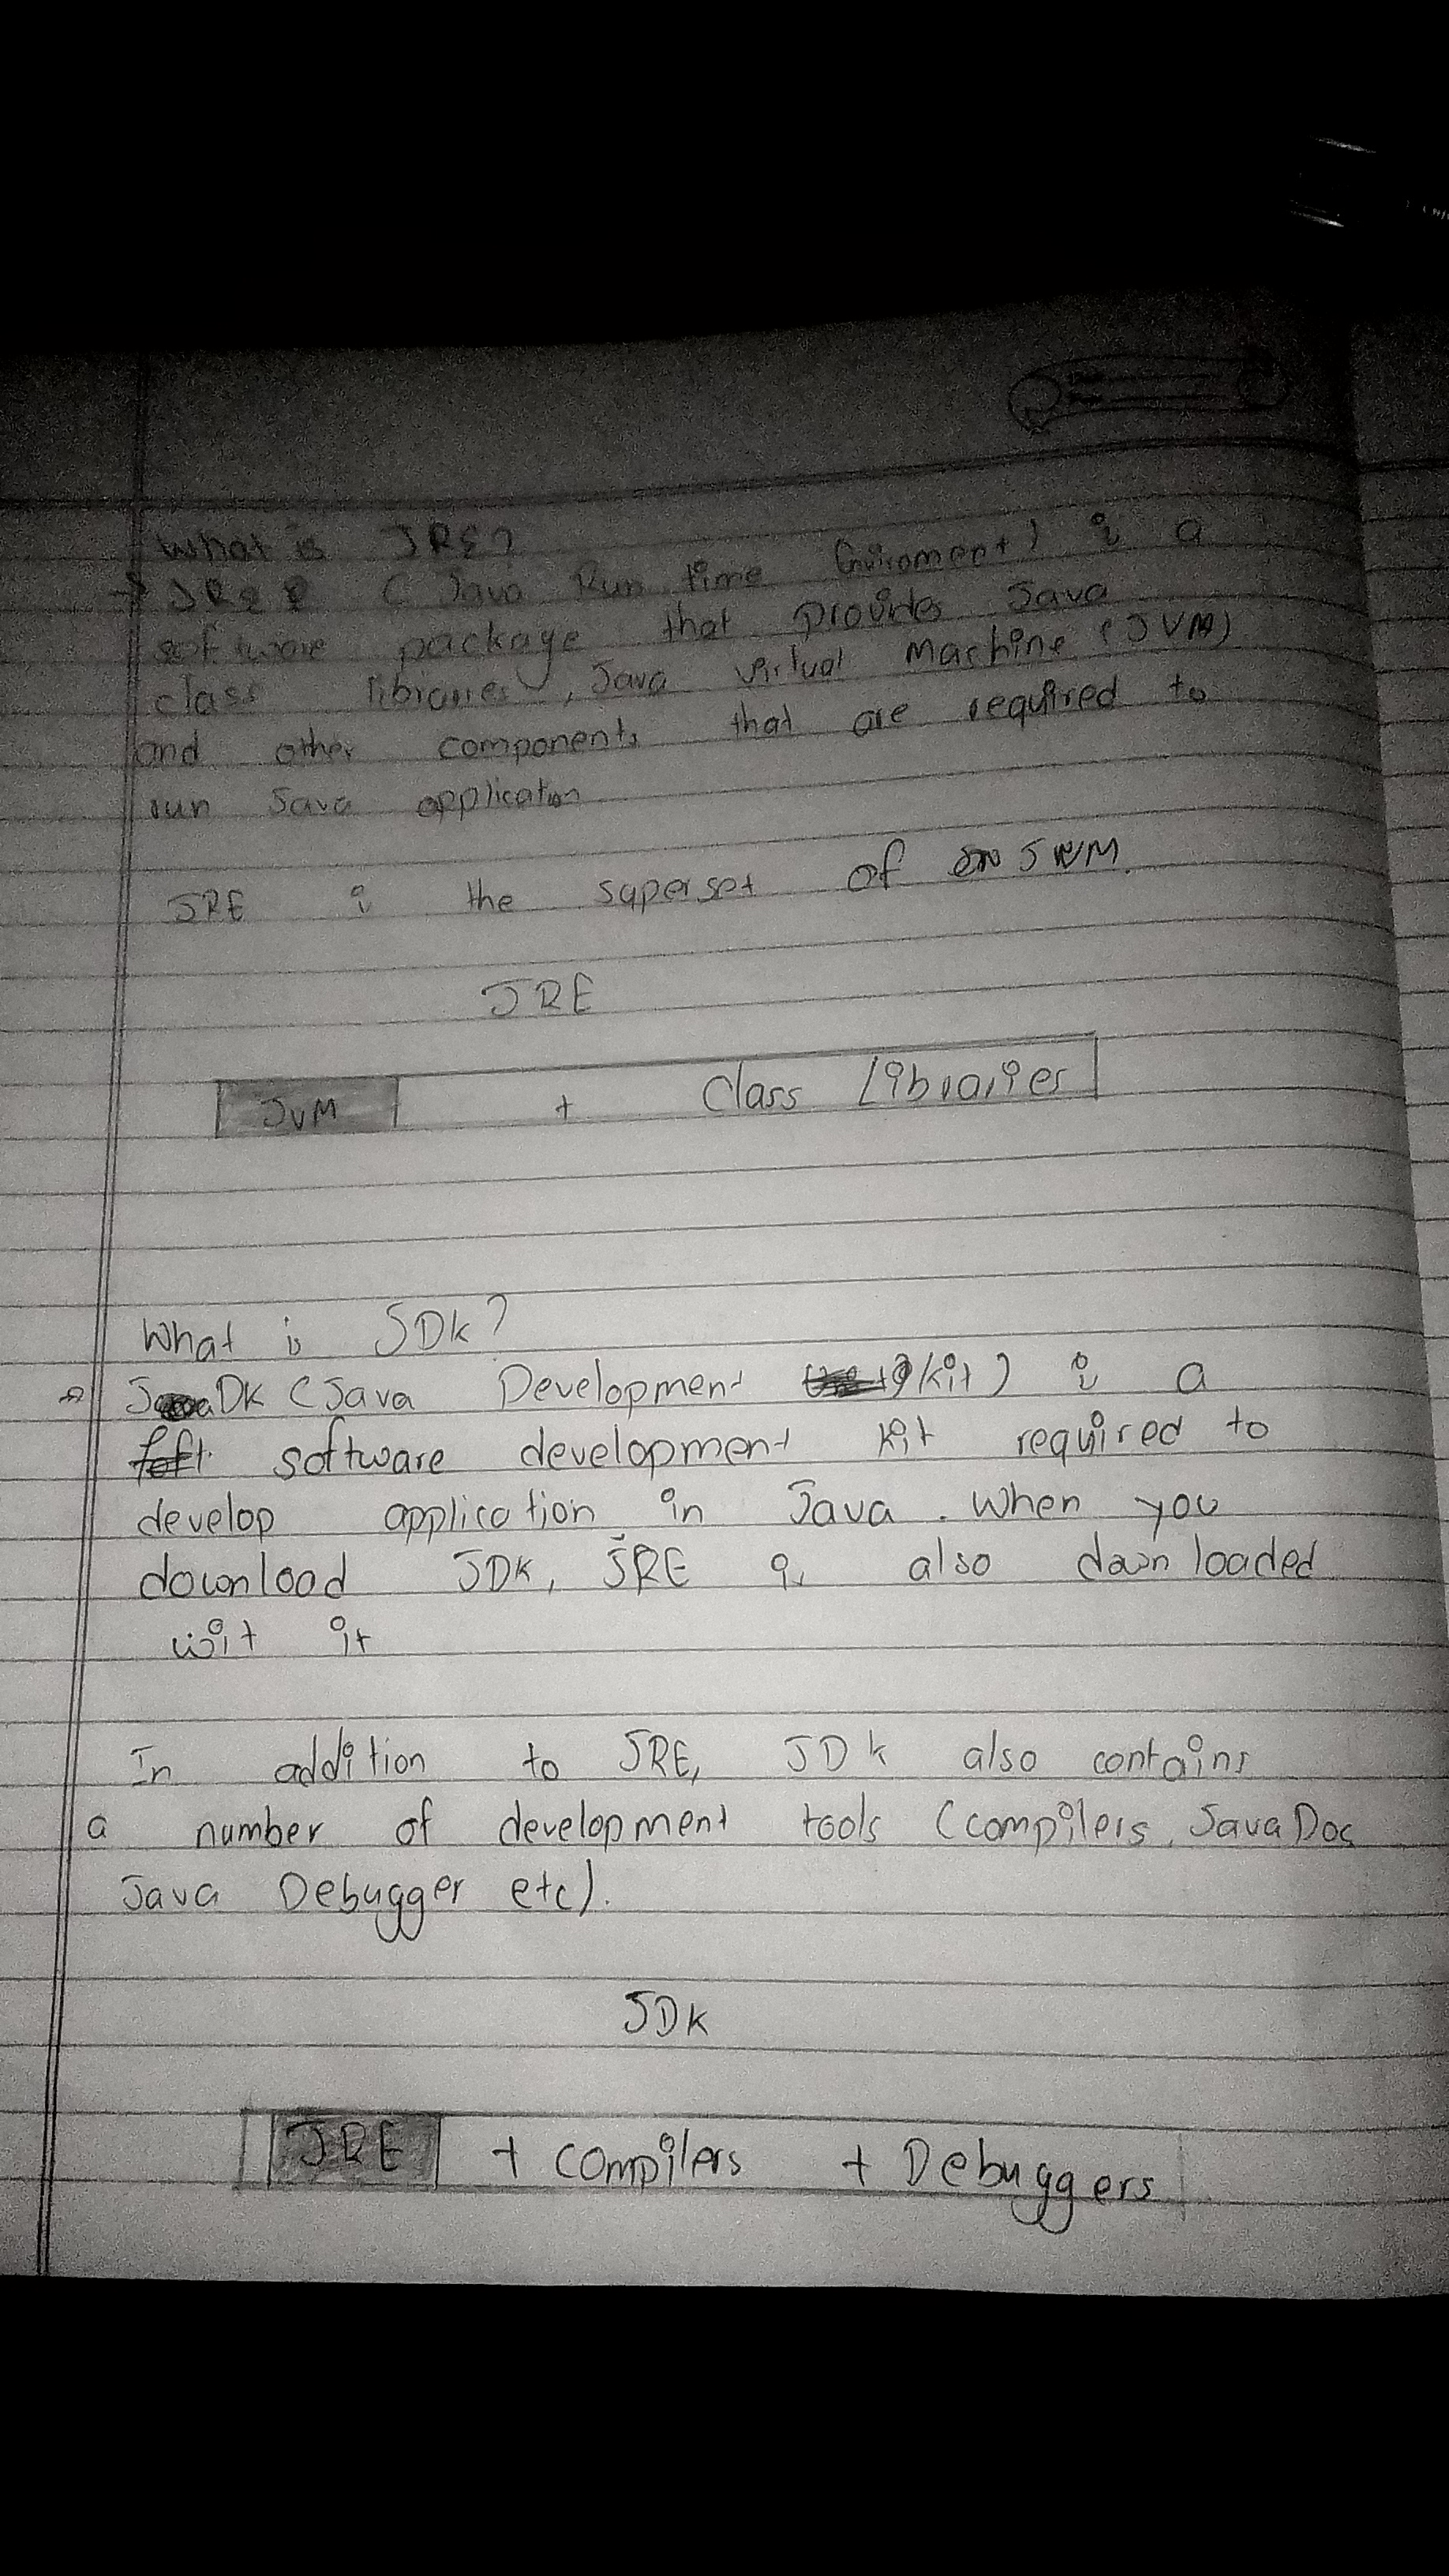 What is JRE?
→ JRE (Java Run time Enviroment) is a
software package that provides Java
class libraries, Java virtual Machine (JVM)
and other components that are required to
run Java application
JRE is the superset of JVM.
JRE
JVM + Class Libraries
What is JDK?
→ JDK (Java Development Kit) is a
software development kit required to
develop application in Java. When you
download JDK, JRE is also downloaded
wit it
In addition to JRE, JDK also contains
a number of development tools (compilers, JavaDoc
Java Debugger etc).
JDK
JRE + compilers + Debuggers